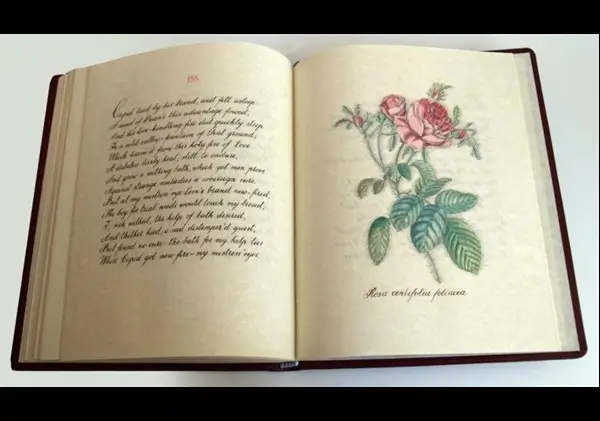 153.
Cupid laid by his brand, and fell asleep:
A maid of Dian's this advantage found,
And his love-kindling fire did quickly steep
In a cold valley-fountain of that ground;
Which borrow'd from this holy fire of Love
A dateless lively heat, still to endure,
And grew a seething bath, which yet men prove
Against strange maladies a sovereign cure.
But at my mistress' eye Love's brand new-fired,
The boy for trial needs would touch my breast;
I, sick withal, the help of bath desired,
And thither hied, a sad distemper'd guest,
But found no cure: the bath for my help lies
Where Cupid got new fire - my mistress' eyes.
Rosa centifolia foliacea